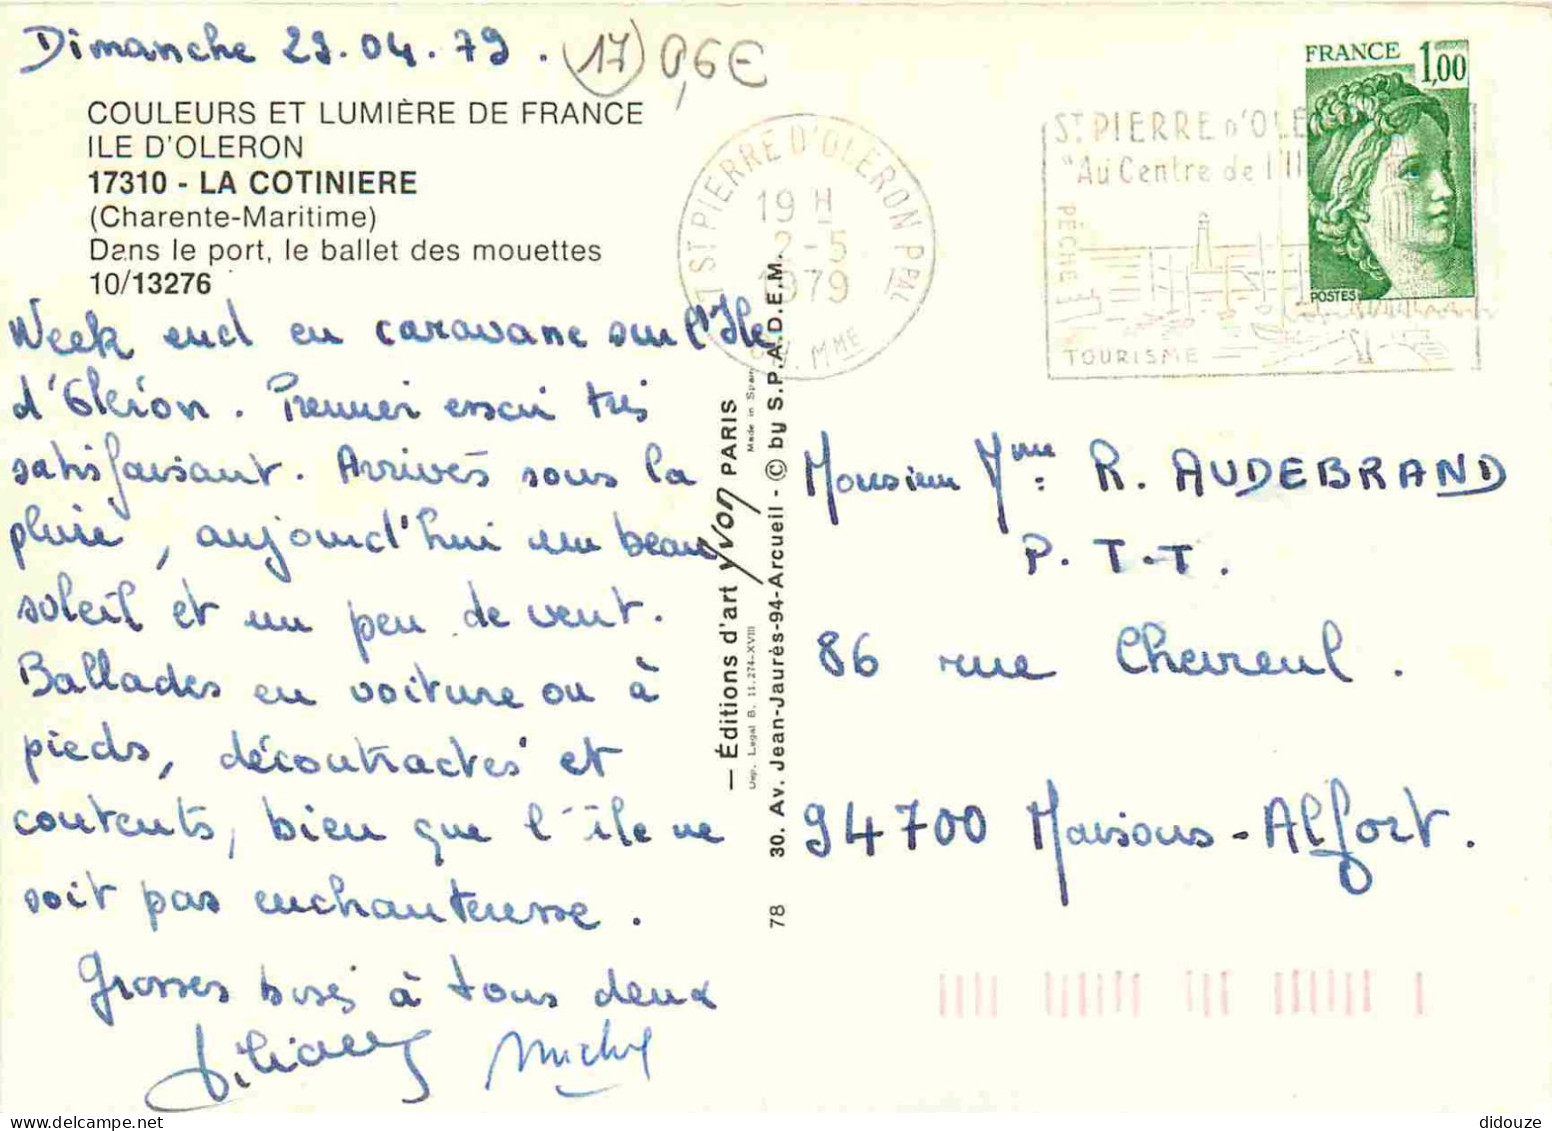 Dimanche 29.04.79.
17 0,6€
COULEURS ET LUMIÈRE DE FRANCE
ILE D'OLERON
17310 - LA COTINIERE
(Charente-Maritime)
Dans le port, le ballet des mouettes
10/13276
Week end en caravane sur l'Ile
d'Oléron. Premier essai très
satisfaisant. Arrivés sous la
pluie, aujourd'hui un beau
soleil et un peu de vent.
Ballades en voiture ou à
pieds, décontractés et
contents, bien que l'île ne
soit pas enchanteresse.
Grosses bises à tous deux
Liliane Michel
— Éditions d'art Yvon PARIS
Made in Spain
Dep. Legal B. 11.274-XVIII
78 30. Av. Jean-Jaurès-94-Arcueil - © by S.P.A.D.E.M.
17 ST PIERRE D'OLERON PPAL
19 H
2-5
1979
CH. MME
ST PIERRE D'OLE
"Au Centre de l'Il
PÊCHE
TOURISME
FRANCE 1,00
POSTES
Monsieur Mme: R. AUDEBRAND
P.T.T.
86 rue Chevreul.
94700 Maisons-Alfort.
didouze